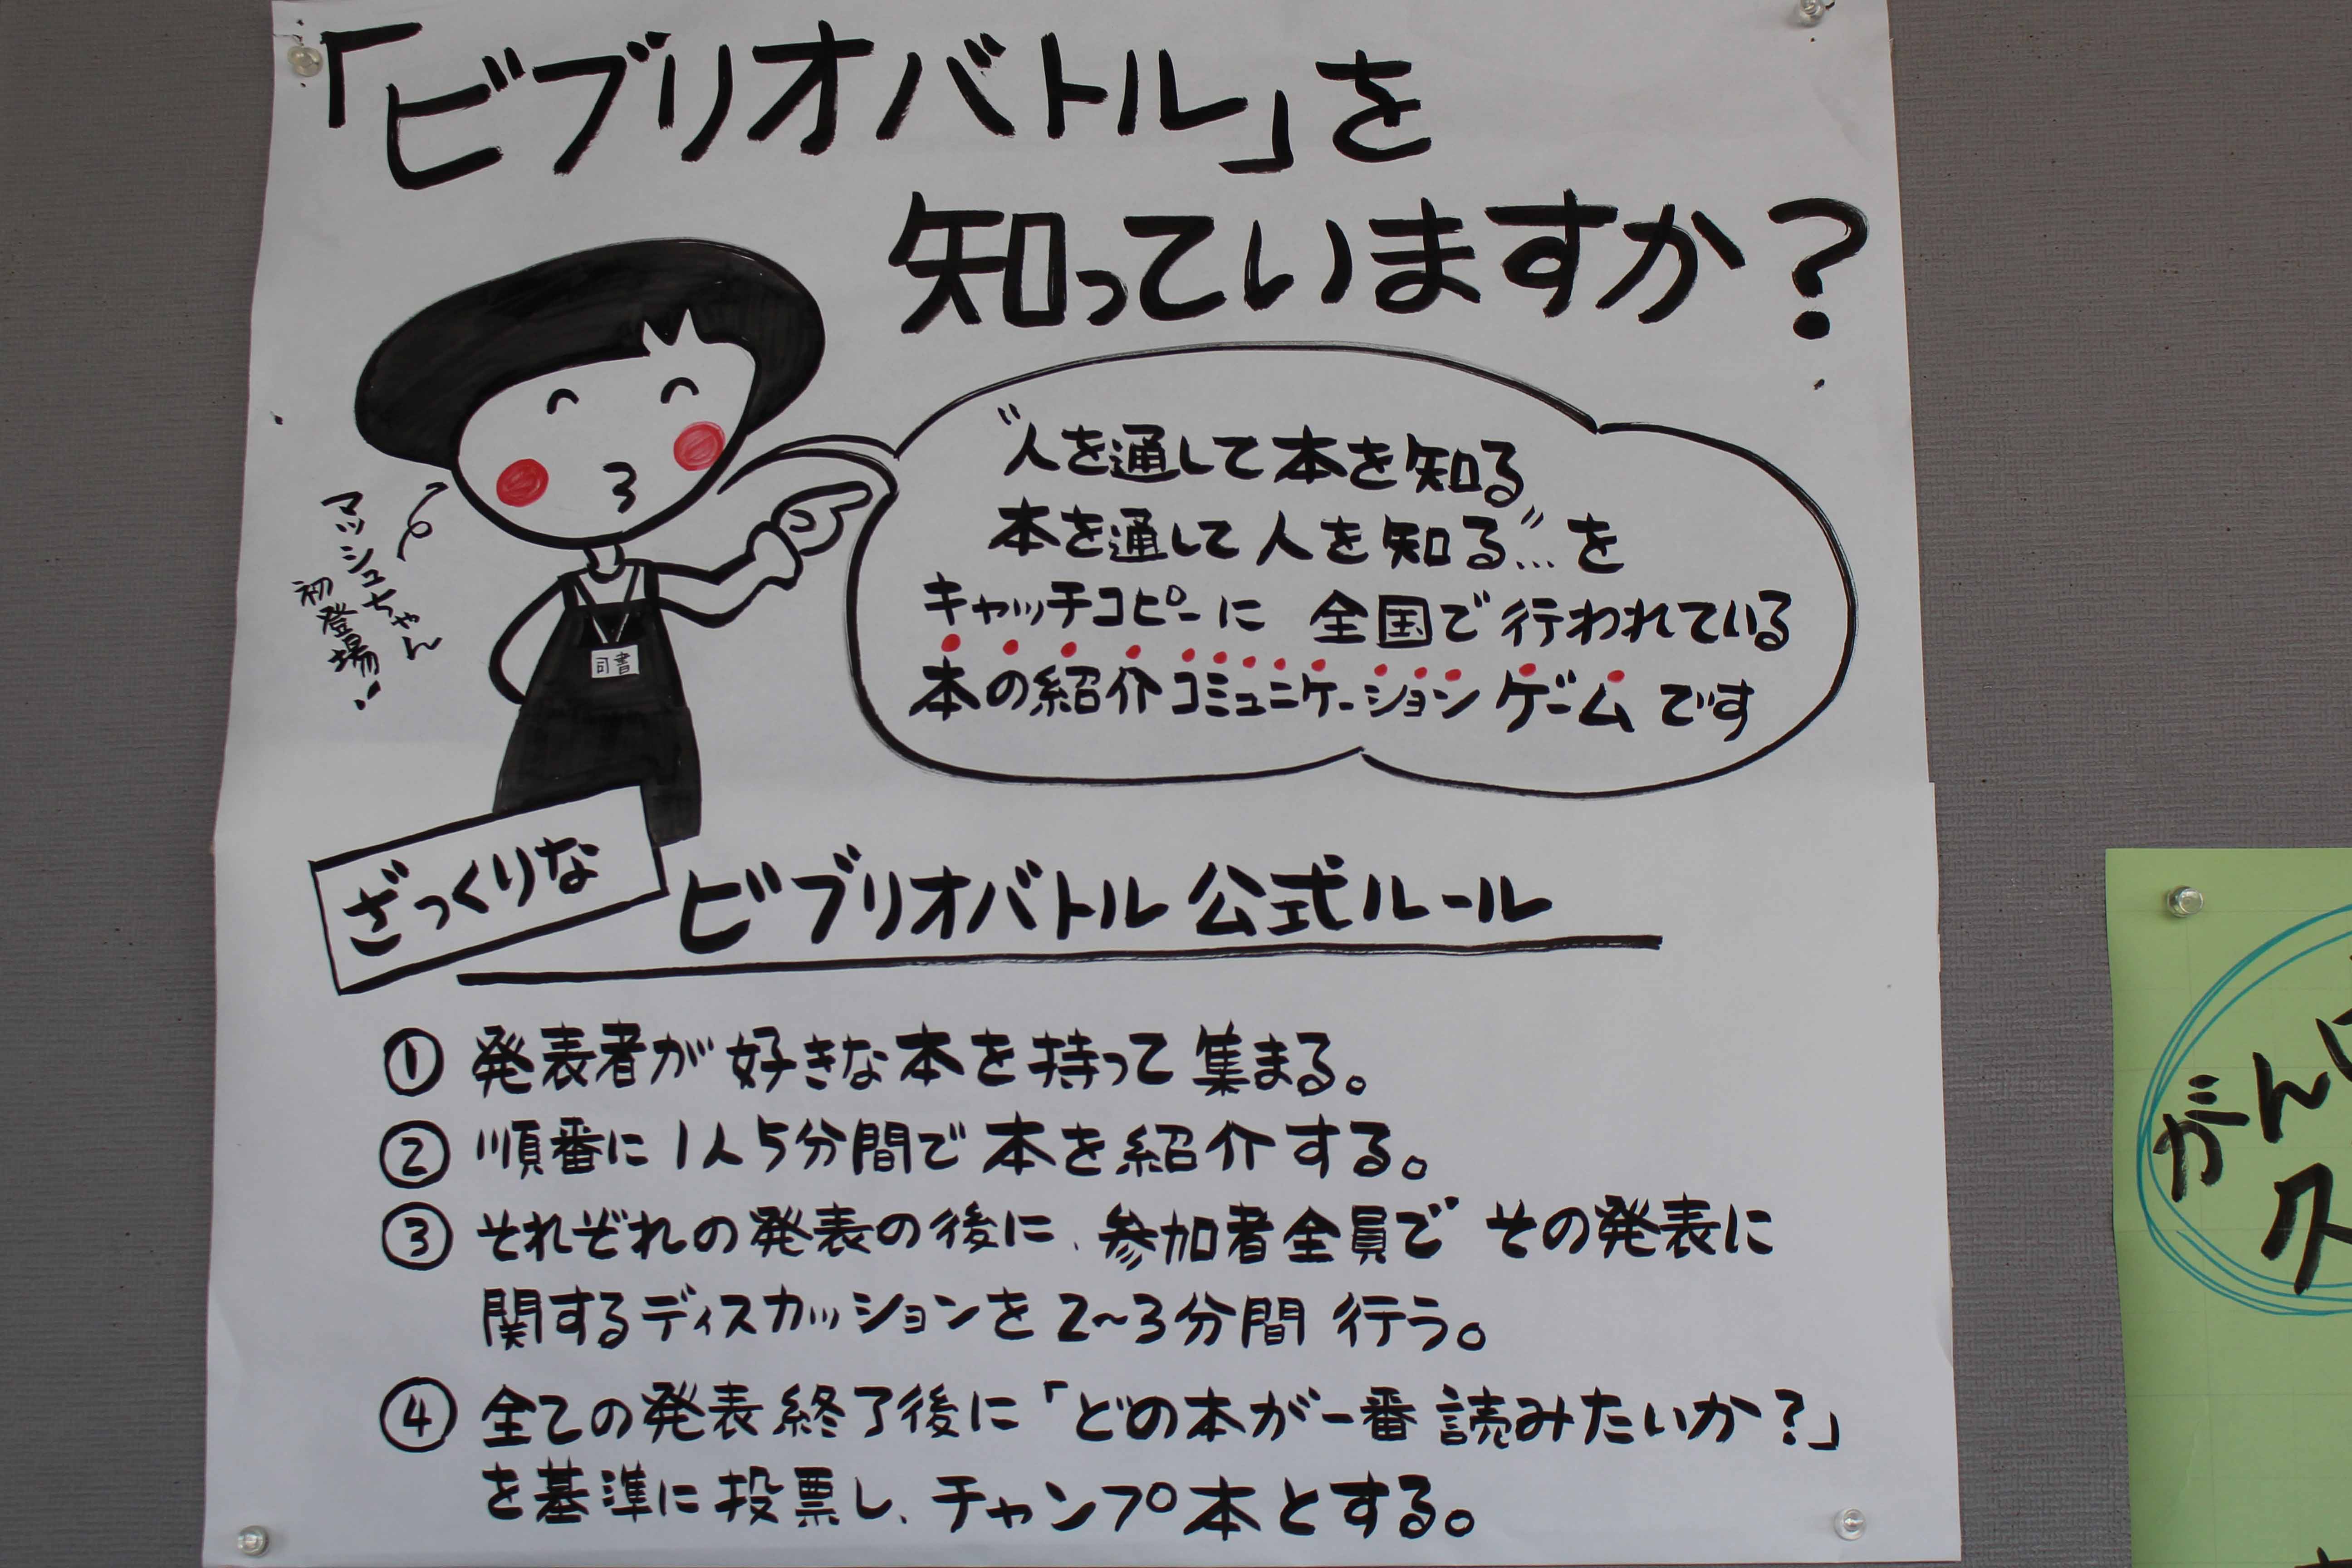 「ビブリオバトル」を
知っていますか？
"人を通して本を知る
本を通して人を知る"…を
キャッチコピーに 全国で行われている
本の紹介コミュニケーションゲームです
マッシュちゃん
初登場!
司書
ざっくりな
ビブリオバトル公式ルール
① 発表者が好きな本を持って集まる。
② 順番に1人5分間で本を紹介する。
③ それぞれの発表の後に、参加者全員でその発表に
関するディスカッションを2~3分間 行う。
④ 全ての発表終了後に「どの本が一番読みたいか？」
を基準に投票し、チャンプ本とする。
がん
ス